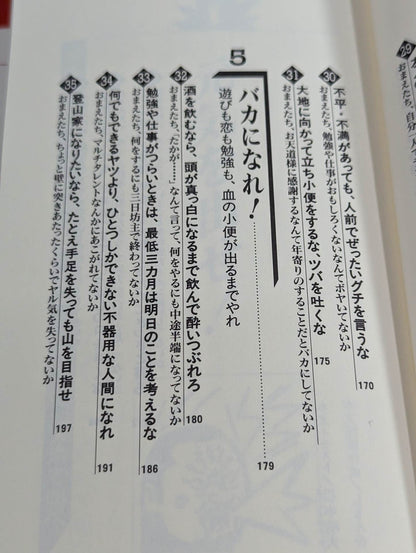 30 不平・不満があっても、人前でぜったいグチを言うな
おまえたち、勉強や仕事がおもしろくないなんてボヤいてないか
170
31 大地に向かって立ち小便をするな、ツバを吐くな
おまえたち、お天道様に感謝するなんて年寄りのすることだとバカにしてないか
175
5
バカになれ!
遊びも恋も勉強も、血の小便が出るまでやれ
179
32 酒を飲むなら、頭が真っ白になるまで飲んで酔いつぶれろ
おまえたち、「たかが……」なんて言って、何をやるにも中途半端になってないか
180
33 勉強や仕事がつらいときは、最低三カ月は明日のことを考えるな
おまえたち、何をするにも三日坊主で終わってないか
186
34 何でもできるヤツより、ひとつしかできない不器用な人間になれ
おまえたち、マルチタレントなんかにあこがれてないか
191
35 登山家になりたいなら、たとえ手足を失っても山を目指せ
おまえたち、ちょっと壁に突きあたったくらいでヤル気を失ってないか
197